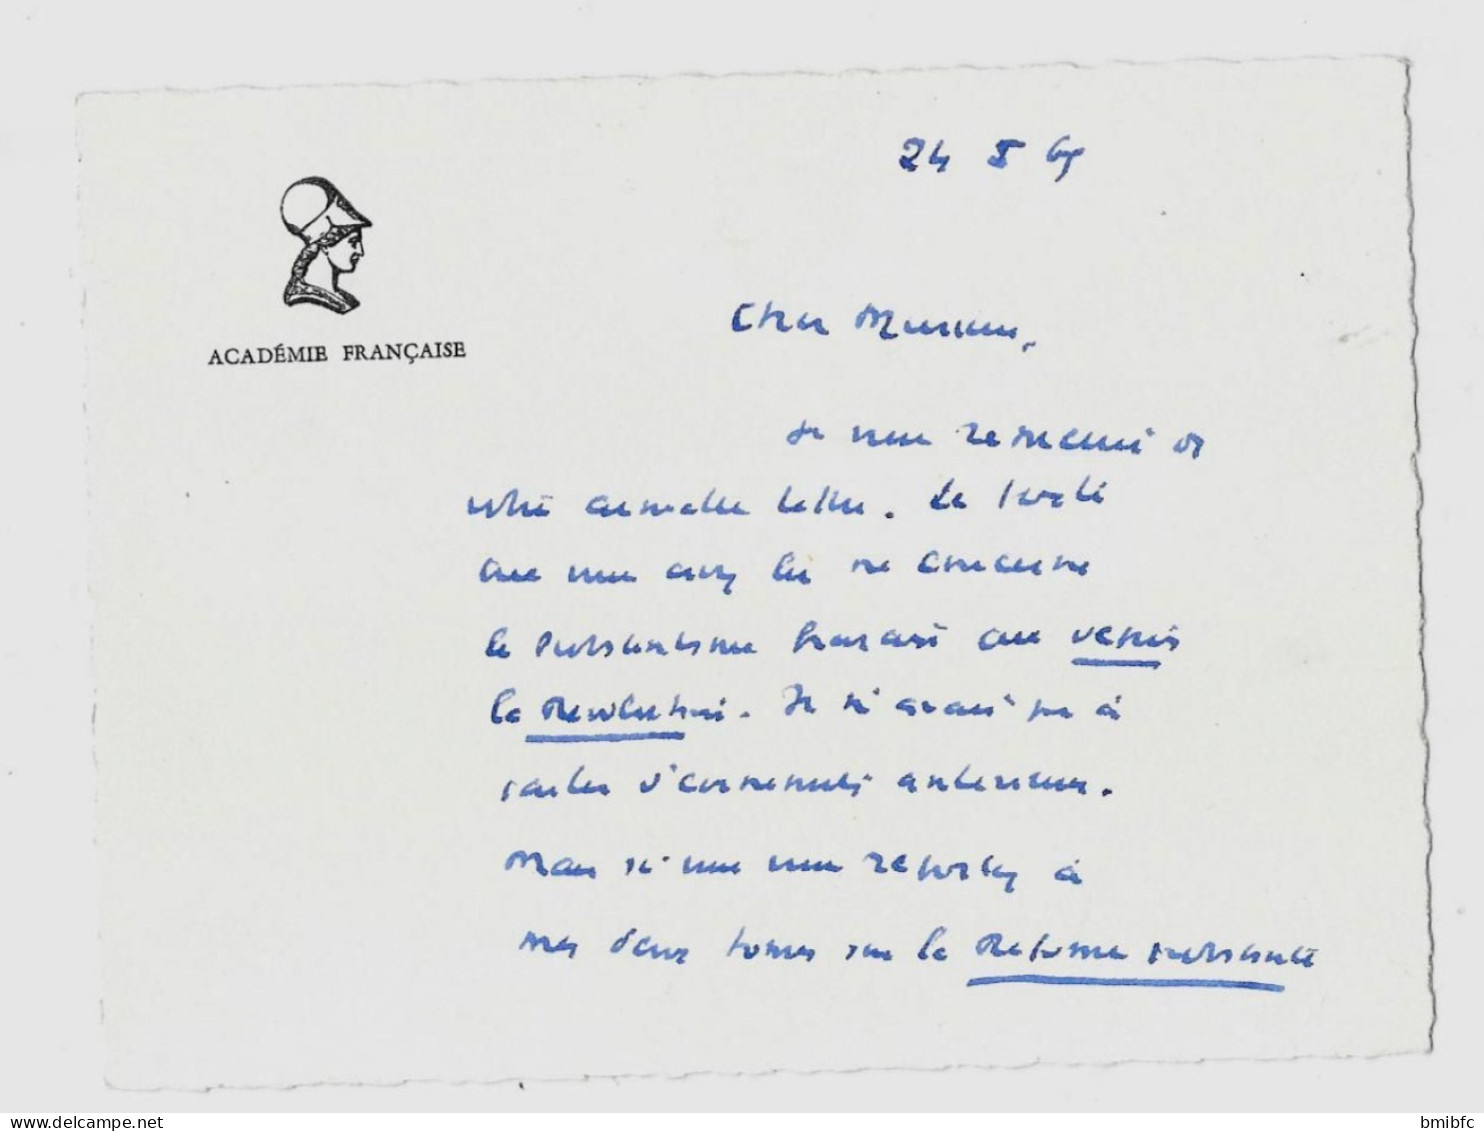 24 I 65
ACADÉMIE FRANÇAISE
Cher Monsieur,
Je vous remercie de
votre aimable lettre. Le
que vous avez lu ne concerne
le Protestantisme français que depuis
la Révolution. Je n'avais pas à
parler d'événements antérieurs.
Mais si vous vous reportez à
mes deux tomes sur la Réforme protestante
www.delcampe.net
bmibfc